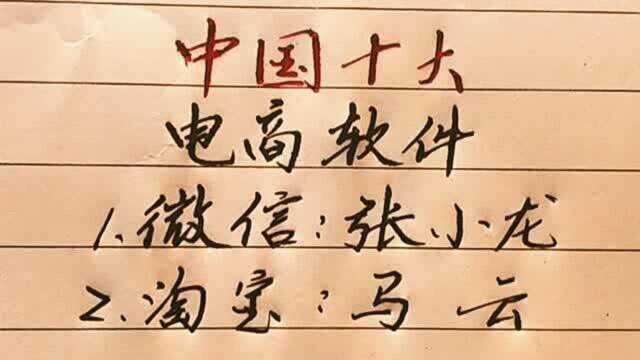 中国十大
电商软件
1.微信:张小龙
2.淘宝:马云